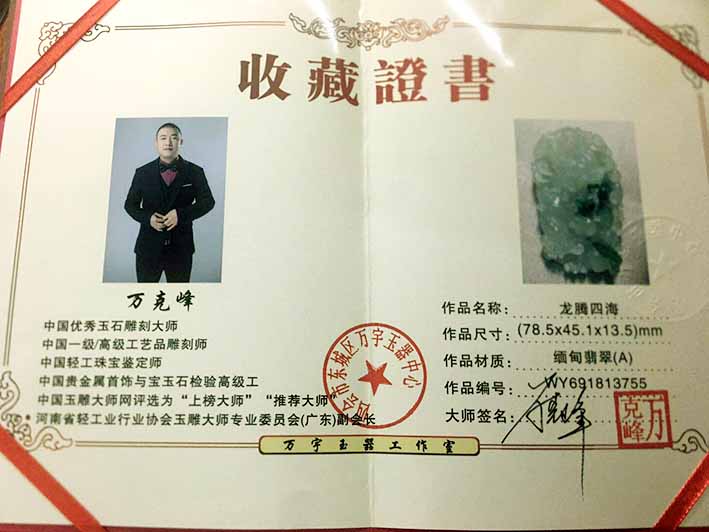 收藏證書
万克峰
中国优秀玉石雕刻大师
中国一级/高级工艺品雕刻师
中国轻工珠宝鉴定师
中国贵金属首饰与宝玉石检验高级工
中国玉雕大师网评选为“上榜大师” “推荐大师”
河南省轻工业行业协会玉雕大师专业委员会(广东)副会长
会市东城区万宇玉器中心
万宇玉器工作室
作品名称: 龙腾四海
作品尺寸: (78.5x45.1x13.5)mm
作品材质: 缅甸翡翠(A)
作品编号: WY691813755
大师签名: 万克峰
万克峰